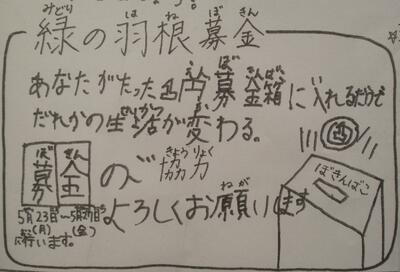 みどり は ね ぼ きん
緑の羽根募金
あなたがたった 募金箱に入れるだけで
せいかつ か
だれかの生活が変わる。
ぼ きん きょうりょく
募金のご協力
ねが
よろしくお願いします
5月23日~5月27日
(月) (金)
に行います。
ぼきんばこ